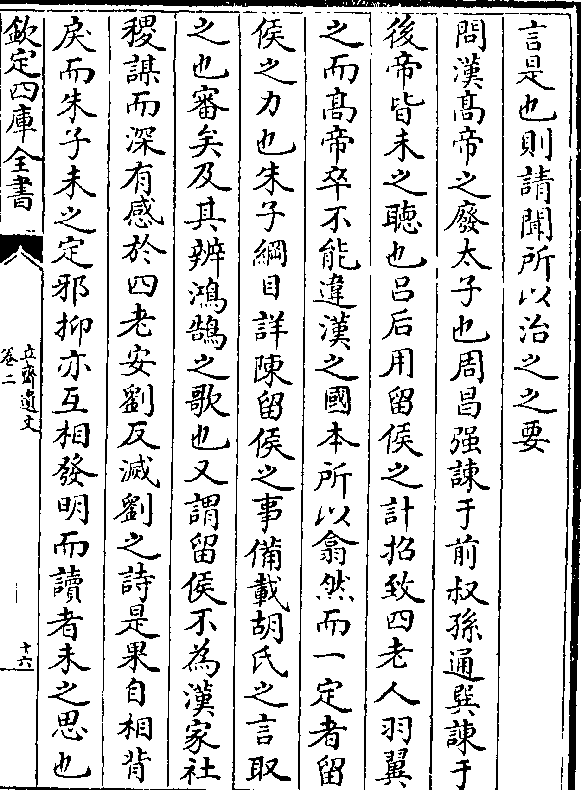 言是也則請聞所以治之之要
問漢髙帝之廢太子也周昌强諫于前叔孫通巽諫于
後帝皆未之聴也吕后用留侯之計招致四老人羽翼
之而髙帝卒不能違漢之國本所以翕然而一定者留
侯之力也朱子綱目詳陳留侯之事備載胡氏之言取
之也審矣及其辨鴻鵠之歌也又謂留侯不為漢家社
稷謀而深有感於四老安劉反滅劉之詩是果自相背
戾而朱子未之定邪抑亦互相發明而讀者未之思也
欽定四庫全書
立齋遺文
卷二
十六